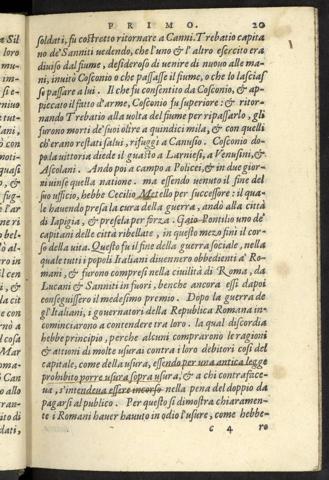 PRIMO. 20
soldati, fu costretto ritornare a Canni. Trebatio capita
no de'Sanniti uedendo, che l'uno & l'altro esercito era
diuiso dal fiume, desideroso di uenire di nuouo alle ma
ni, inuitò Cosconio o che passasse il fiume, o che lo lasciaſ
se passare a lui. Il che fu consentito da Cosconio, & ap
piccato il fatto d'arme, Cosconio fu superiore: & ritor-
nando Trebatio alla uolta del fiume per ripassarlo, gli
furono morti de' suoi oltre a quindici mila, & con quelli
ch'erano restati salui, rifuggì a Canusio. Cosconio do-
po la uittoria diede il guasto a Larniesi, a Venusini, &
Ascolani. Andò poi a campo a Policei, & in due gior-
ni uinse quella natione. ma essendo uenuto il fine del
suo ufficio, hebbe Cecilio Metello per successore: il qua-
le hauendo presa la cura della guerra, andò alla città
di Iapigia, & presela per forza. Gaio Pontilio uno de'
capitani delle città ribellate, in questo mezo finì il cor-
so della uita. Questo fu il fine della guerra sociale, nella
quale tutti i popoli Italiani diuennero obbedienti a' Ro-
mani, & furono compresi nella ciuilità di Roma, da
Lucani & Sanniti in fuori, benche ancora essi dapoi
conseguissero il medesimo premio. Dopo la guerra de
gl'Italiani, i gouernatori della Republica Romana in-
cominciarono a contendere tra loro. la qual discordia
hebbe principio, perche alcuni comprarono le ragioni
& attioni di molte usurai contra i loro debitori così del
capitale, come della usura, essendo per una antica legge
prohibito porre usura sopra usura, & a chi contraface-
ua, s'intendeua essere incorso nella pena del doppio da
pagarsi al publico. Per questo si dimostra chiaramen-
te i Romani hauer hauuto in odio l'usure, come hebbe-
c 4 ro